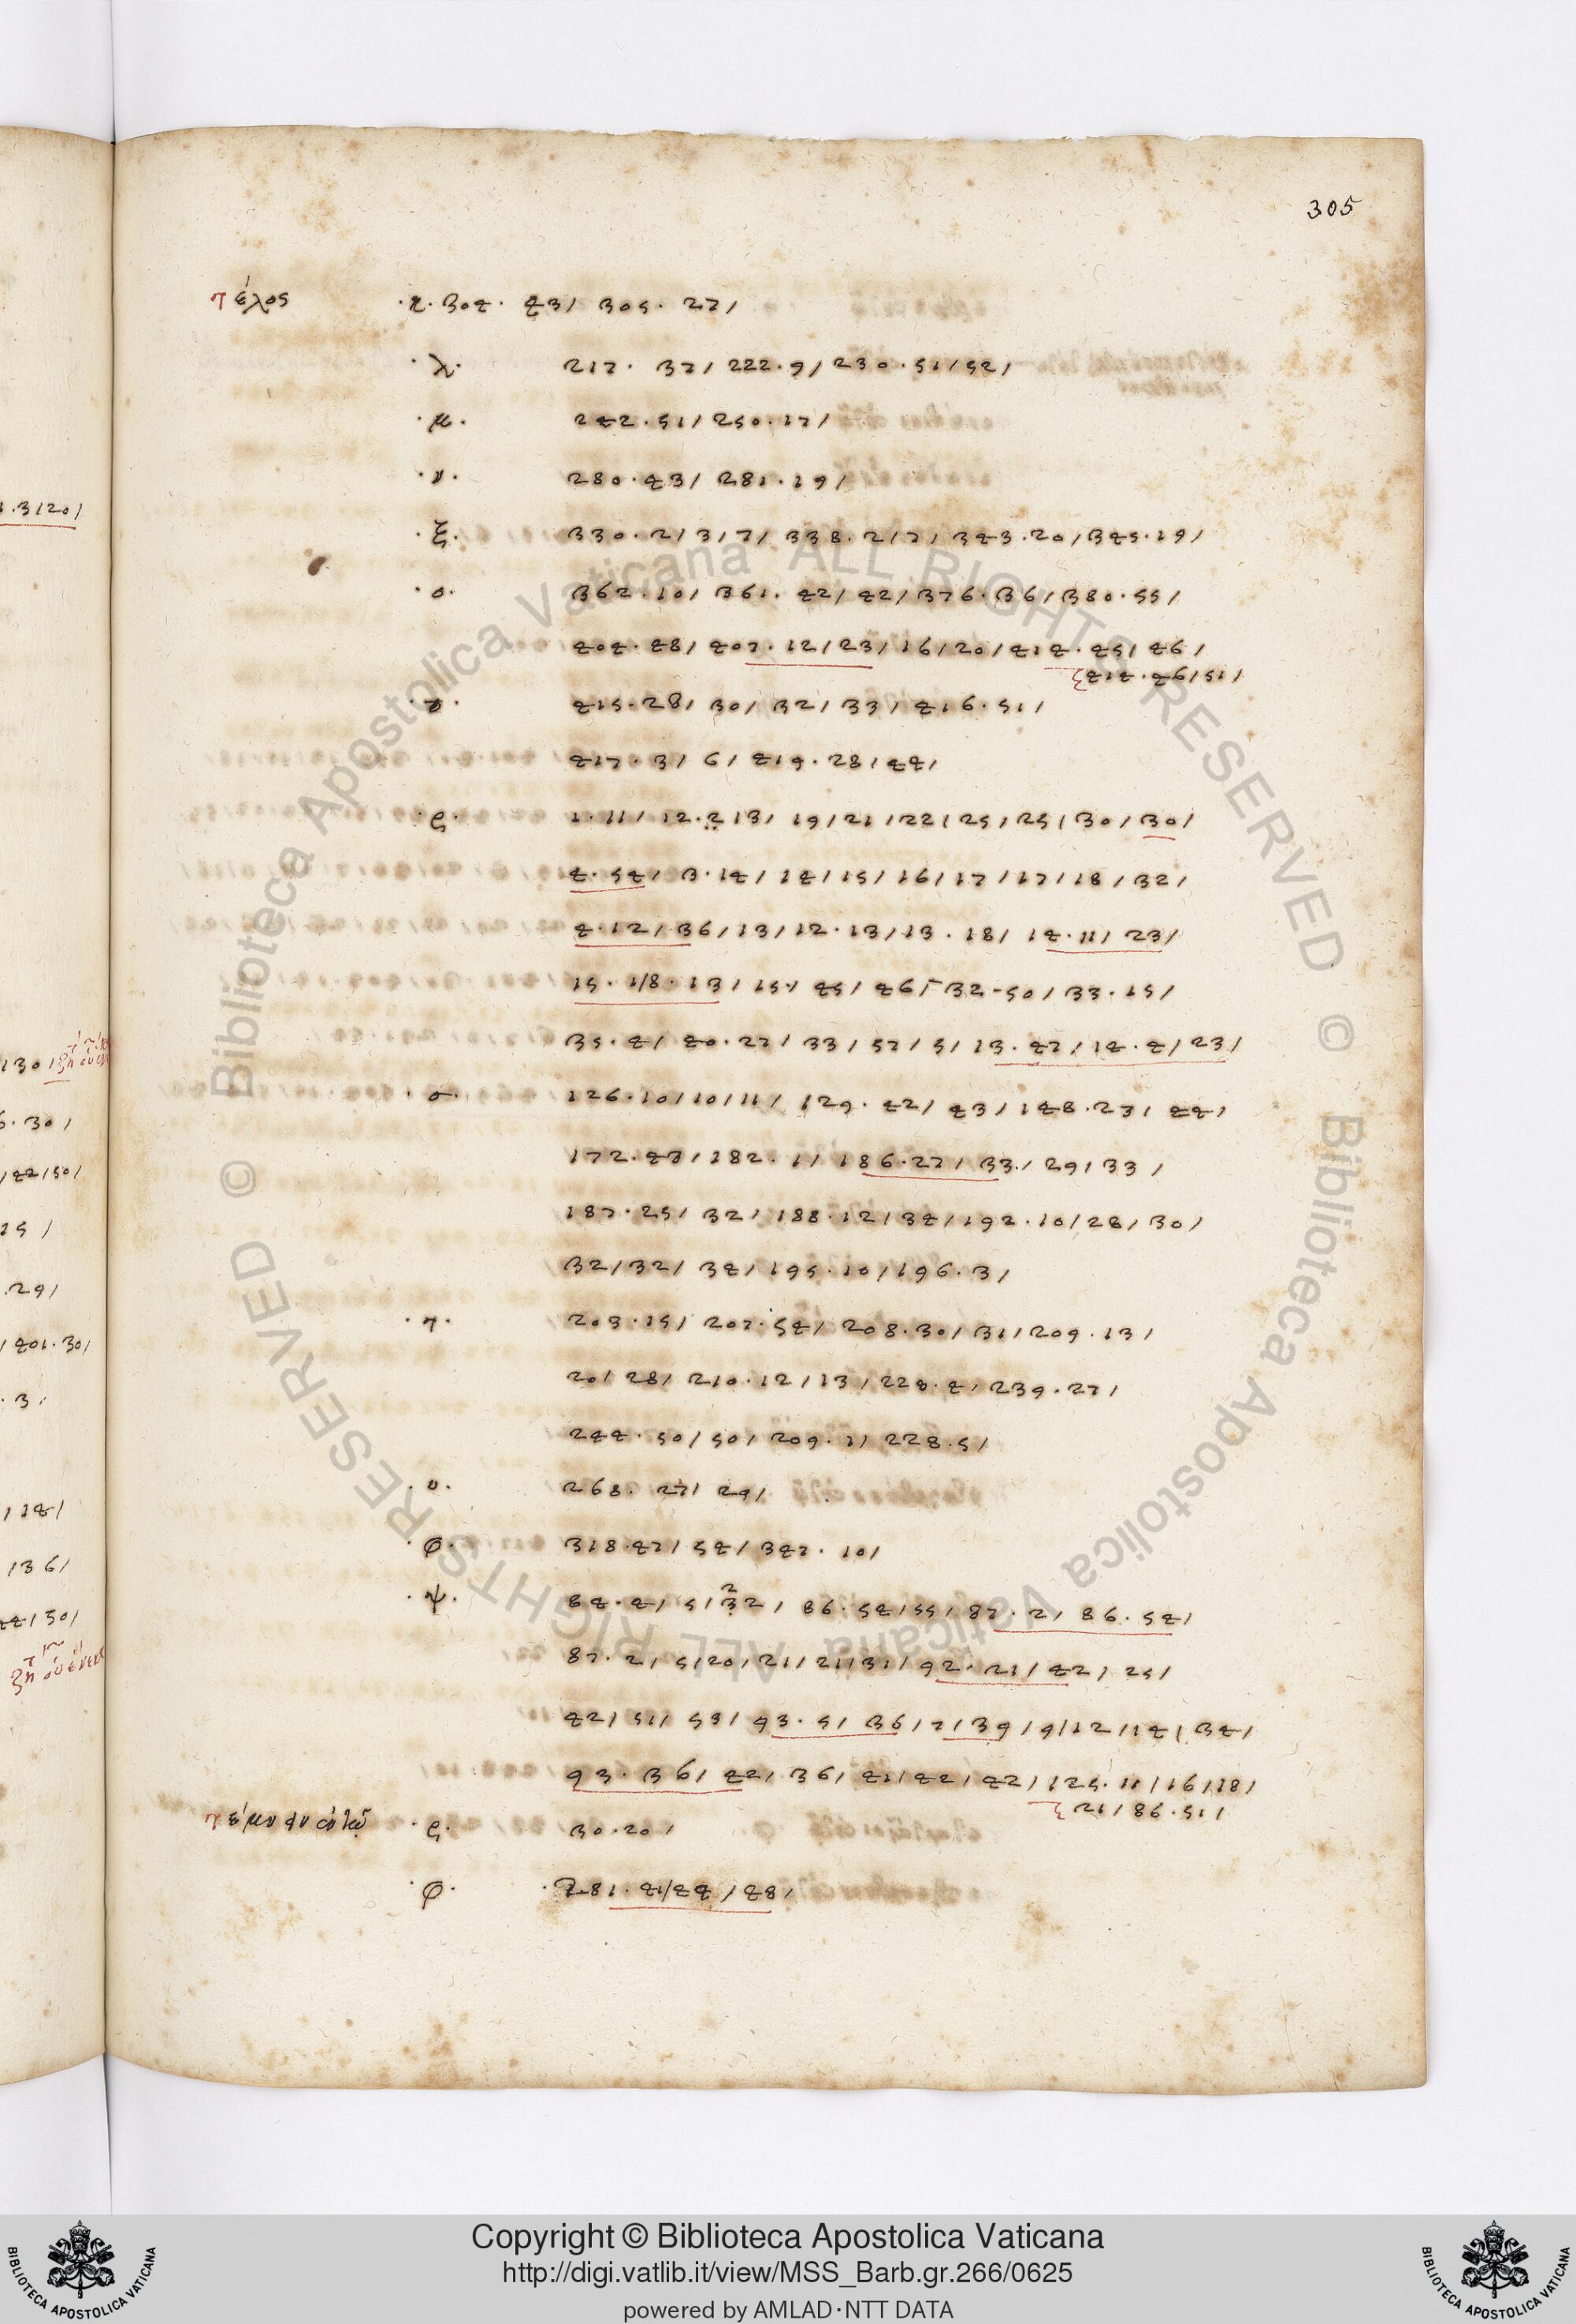 305
τέλος ·κ· 304· 43/ 305· 27/
·λ· 217· 37/ 222·9/ 230·51/52/
·μ· 242·51/ 250·17/
·ν· 280·43/ 281·19/
·ξ· 330·2/3/7/ 338·2/7/ 343·20/345·19/
·ο· 362·10/ 361·42/42/376·36/380·55/
404·48/ 407·12/23/16/20/414·45/46/
414·46/51/
415·28/ 30/ 32/ 33/ 416·51/
417·3/ 6/ 419·28/44/
·ς· 1·11/ 12·2/3/ 19/21/22/25/25/30/30/
4·54/ 3·14/ 14/15/ 16/17/17/18/32/
4·12/ 36/13/12·13/13·18/ 14·11/ 23/
15·1/8·13/ 15·/ 45/ 46/ 32-50/ 33·15/
35·4/ 40·27/ 33/ 57/ 5/ 13·47/ 14·4/ 23/
·σ· 126·10/10/11/ 129·42/ 43/ 148·23/ 44/
172·43/182·1/ 186·27/ 33·/ 29/33/
187·25/ 32/ 188·12/34/192·10/28/30/
32/32/ 34/195·10/196·3/
·τ· 203·15/ 207·54/ 208·30/31/209·13/
20/ 28/ 210·12/13/228·4/ 239·27/
244·50/50/ 209·1/ 228·5/
·υ· 268· 27/ 29/
·φ· 318·47/ 54/ 347·10/
·ψ· 84·4/ 5/32/ 86·54/55/ 87·2/ 86·54/
87·2/ 5/20/21/21/31/ 92·21/ 42/ 25/
42/ 51/ 53/ 93·5/ 36/7/39/9/12/14/34/
93·36/ 42/ 36/ 41/42/ 42/ 125·11/16/18/
21/ 86·51/
·ς· 30·20/
·φ· ·281·41/44/48/
Copyright © Biblioteca Apostolica Vaticana
http://digi.vatlib.it/view/MSS_Barb.gr.266/0625
powered by AMLAD·NTT DATA